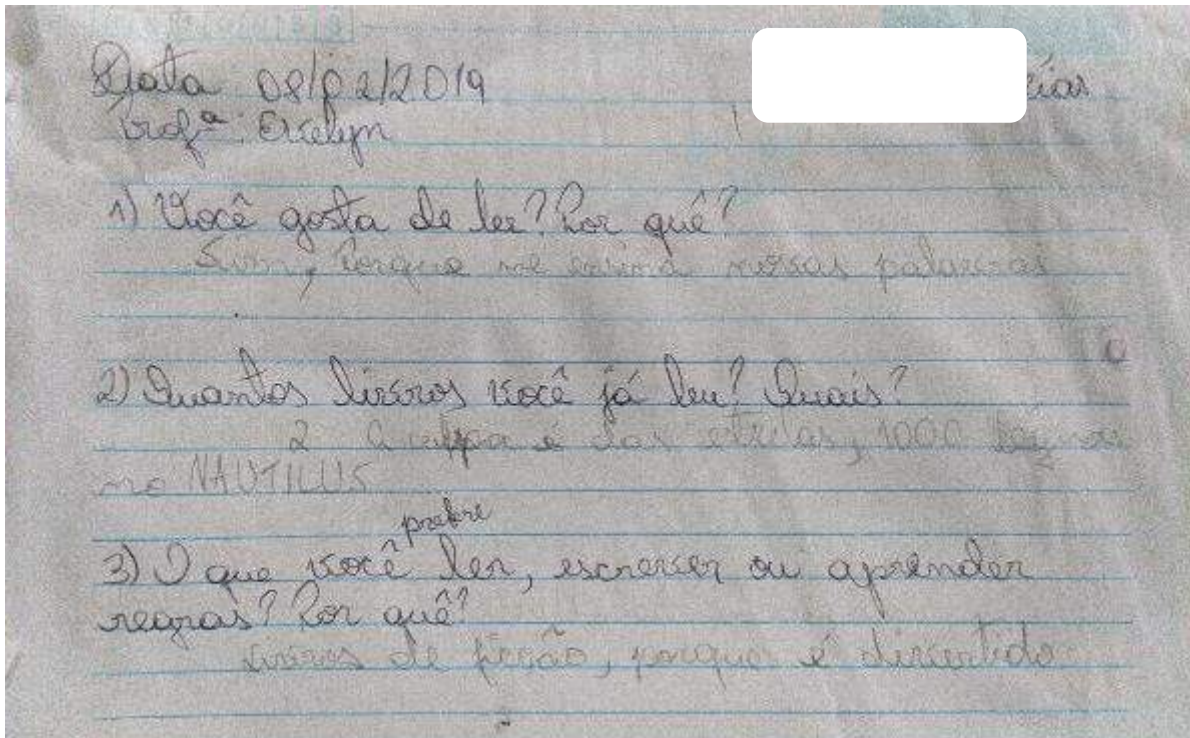 Data 08/02/2019
Profª: Evelyn
1) Você gosta de ler? Por quê?
Sim, Porque me ensina novas palavras
2) Quantos livros você já leu? Quais?
2 A culpa é das etrelas, 1000
no NAUTILUS
prefere
3) O que você ler, escrever ou aprender
regras? Por quê?
Livros de ficção, porque é divertido